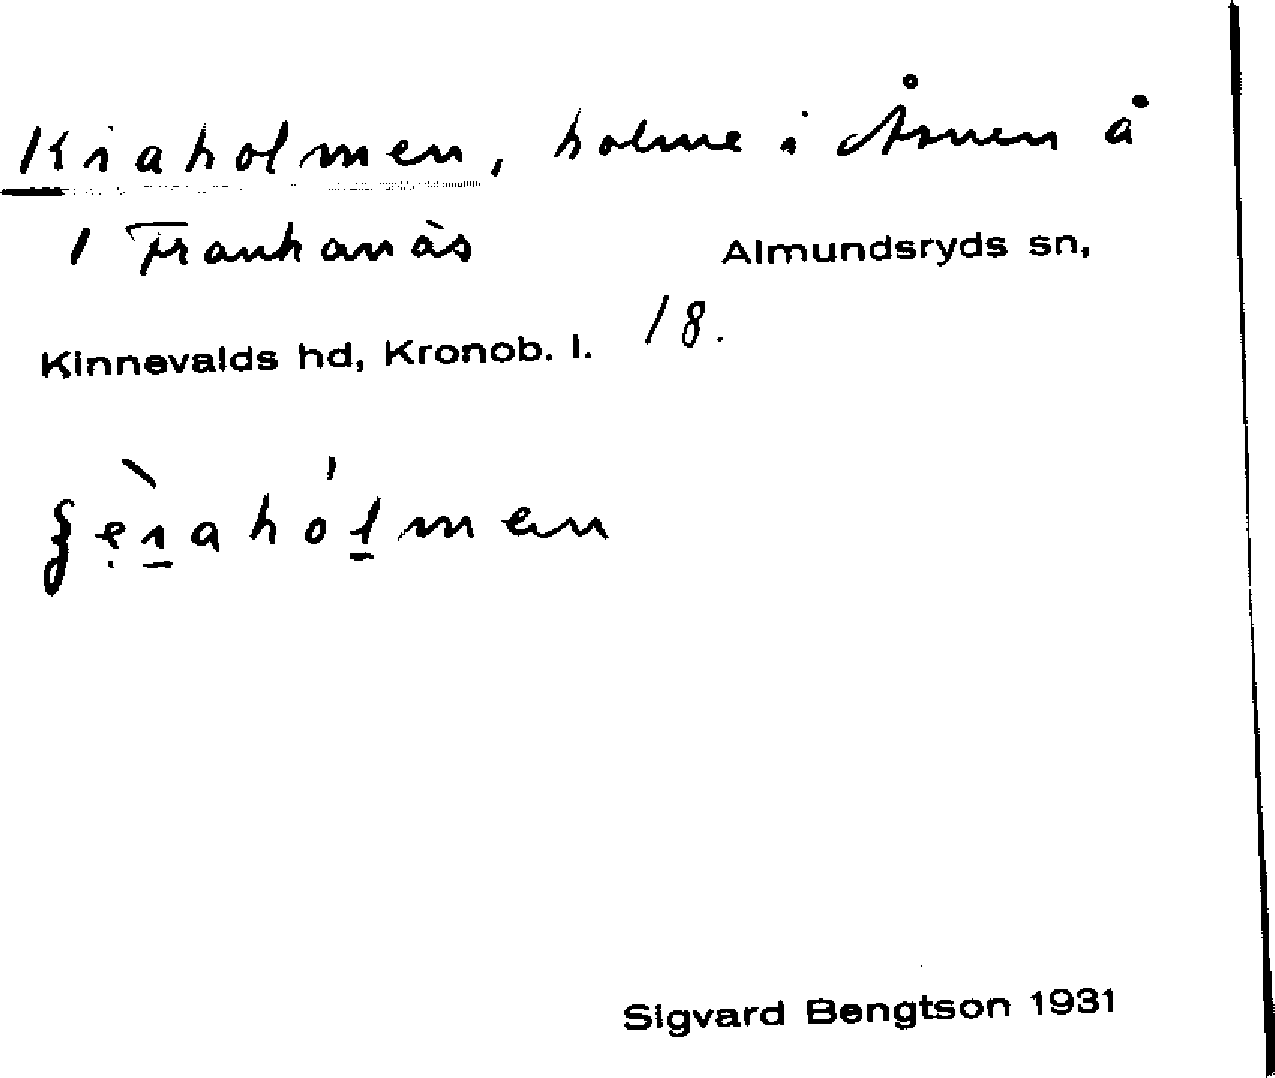 Kiaholmen, holme i Åsnen å
1 Frankanäs Almundsryds sn,
Kinnevalds hd, Kronob. l. 18.
Sigvard Bengtson 1931